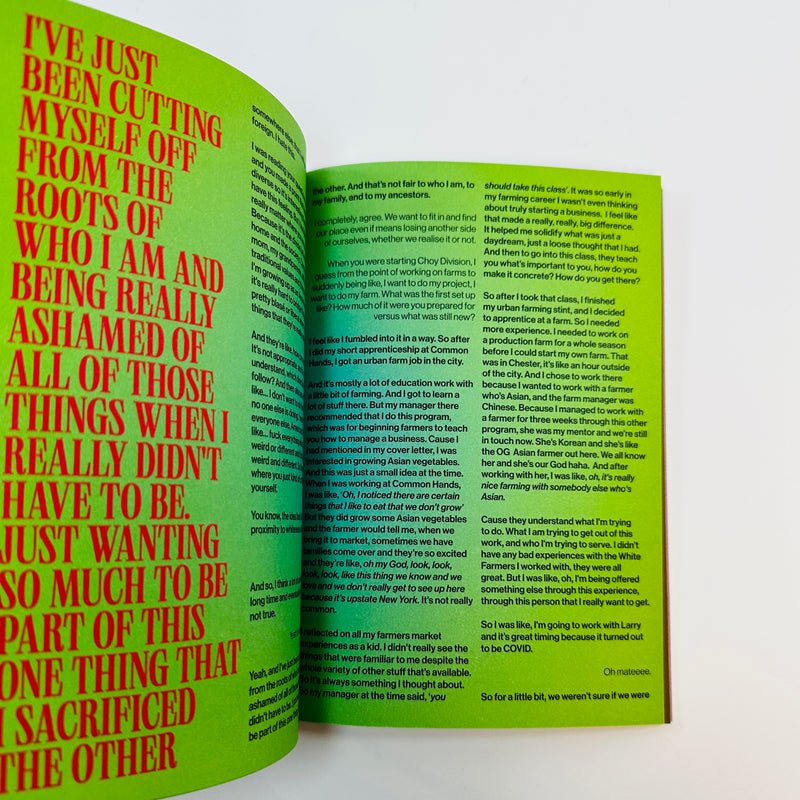 I'VE JUST
BEEN CUTTING
MYSELF OFF
FROM THE
ROOTS OF
WHO I AM AND
BEING REALLY
ASHAMED OF
ALL OF THOSE
THINGS WHEN I
REALLY DIDN'T
HAVE TO BE.
JUST WANTING
SO MUCH TO BE
PART OF THIS
ONE THING THAT
I SACRIFICED
THE OTHER
somewhere else,
foreign. I hate
I was reading your
and you made a
diverse so it's
have this feeling. But
really matter wh
Because it's the
home and the society
mom, my grand
traditional values
I'm growing up as a
it's really hard to
pretty blasé or
things that they're
And they're like,
It's not appropriate, and
understand, which di
follow? And then also
like... I don't want to
no one else is doing
everyone else. Ameri
like... fuck everything
weird or different and
weird and different. So
where you just kind of
yourself.
You know, the idea
proximity to whiteness
And so, I think a lot
long time and eventual
not true.
Yeah, and I've just
from the roots of wh
ashamed of all of
didn't have to be. J
be part of this one
the other. And that's not fair to who I am, to
my family, and to my ancestors.
I completely, agree. We want to fit in and find
our place even if means losing another side
of ourselves, whether we realise it or not.
When you were starting Choy Division, I
guess from the point of working on farms to
suddenly being like, I want to do my project, I
want to do my farm. What was the first set up
like? How much of it were you prepared for
versus what was still new?
I feel like I fumbled into it in a way. So after
I did my short apprenticeship at Common
Hands, I got an urban farm job in the city.
And it's mostly a lot of education work with
a little bit of farming. And I got to learn a
lot of stuff there. But my manager there
recommended that I do this program,
which was for beginning farmers to teach
you how to manage a business. Cause I
had mentioned in my cover letter, I was
interested in growing Asian vegetables.
And this was just a small idea at the time.
When I was working at Common Hands,
I was like, 'Oh, I noticed there are certain
things that I like to eat that we don't grow'
But they did grow some Asian vegetables
and the farmer would tell me, when we
bring it to market, sometimes we have
families come over and they're so excited
and they're like, oh my God, look, look,
look, look, like this thing we know and we
love and we don't really get to see up here
because it's upstate New York. It's not really
common.
I reflected on all my farmers market
experiences as a kid. I didn't really see the
things that were familiar to me despite the
whole variety of other stuff that's available.
So it's always something I thought about.
So my manager at the time said, 'you
should take this class'. It was so early in
my farming career I wasn't even thinking
about truly starting a business. I feel like
that made a really, really, big difference.
It helped me solidify what was just a
daydream, just a loose thought that I had.
And then to go into this class, they teach
you what's important to you, how do you
make it concrete? How do you get there?
So after I took that class, I finished
my urban farming stint, and I decided
to apprentice at a farm. So I needed
more experience. I needed to work on
a production farm for a whole season
before I could start my own farm. That
was in Chester, it's like an hour outside
of the city. And I chose to work there
because I wanted to work with a farmer
who's Asian, and the farm manager was
Chinese. Because I managed to work with
a farmer for three weeks through this other
program, she was my mentor and we're still
in touch now. She's Korean and she's like
the OG Asian farmer out here. We all know
her and she's our God haha. And after
working with her, I was like, oh, it's really
nice farming with somebody else who's
Asian.
Cause they understand what I'm trying
to do. What I am trying to get out of this
work, and who I'm trying to serve. I didn't
have any bad experiences with the White
Farmers I worked with, they were all
great. But I was like, oh, I'm being offered
something else through this experience,
through this person that I really want to get.
So I was like, I'm going to work with Larry
and it's great timing because it turned out
to be COVID.
Oh mateeee.
So for a little bit, we weren't sure if we were